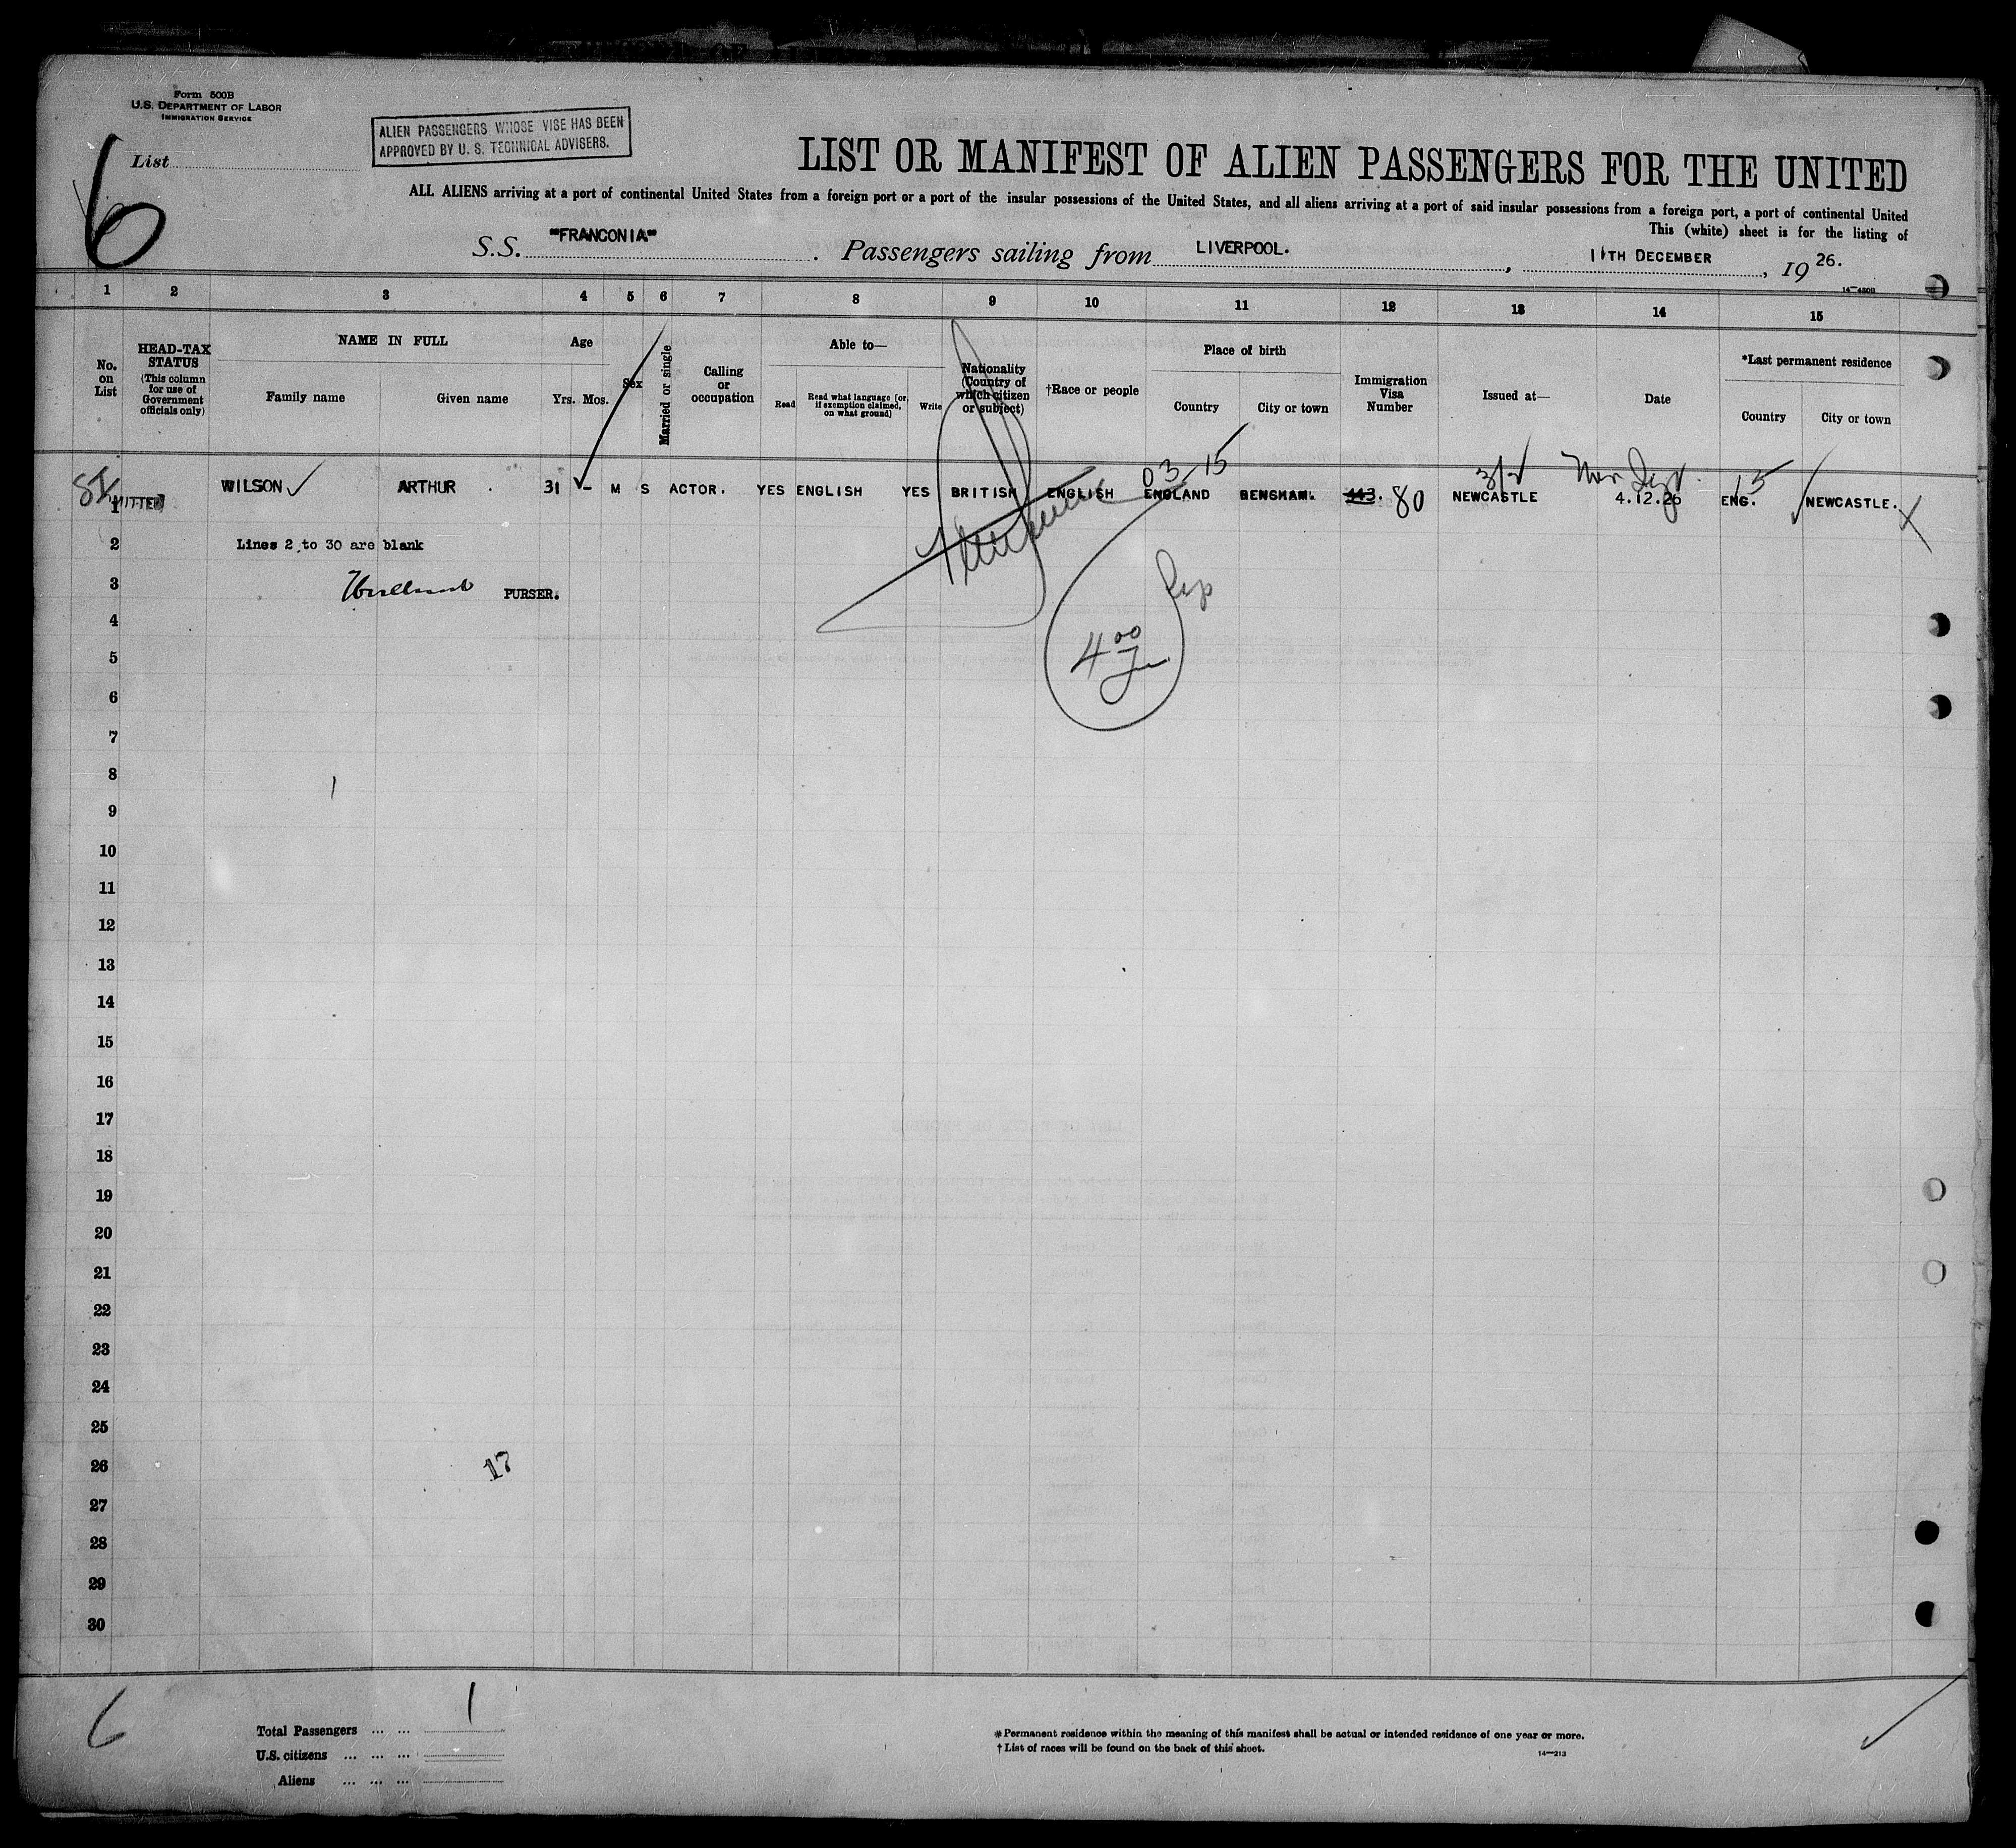 Form 500B
U.S. DEPARTMENT OF LABOR
IMMIGRATION SERVICE
6
List
ALIEN PASSENGERS WHOSE VISE HAS BEEN
APPROVED BY U. S. TECHNICAL ADVISERS.
LIST OR MANIFEST OF ALIEN PASSENGERS FOR THE UNITED
ALL ALIENS arriving at a port of continental United States from a foreign port or a port of the insular possessions of the United States, and all aliens arriving at a port of said insular possessions from a foreign port, a port of continental United
This (white) sheet is for the listing of
S.S. "FRANCONIA" . Passengers sailing from LIVERPOOL. , 11TH DECEMBER , 19 26.
14-480B
1 2 3 4 5 6 7 8 9 10 11 12 13 14 15
No. on List
HEAD-TAX STATUS
(This column for use of Government officials only)
NAME IN FULL
Family name Given name
Age
Yrs. Mos.
Sex
Married or single
Calling or occupation
Able to—
Read
Read what language [or, if exemption claimed, on what ground]
Write
Nationality (Country of which citizen or subject)
†Race or people
Place of birth
Country City or town
Immigration Visa Number
Issued at—
Date
*Last permanent residence
Country City or town
03-15
SI
1 WILSON ARTHUR . 31 - M S ACTOR. YES ENGLISH YES BRITISH ENGLISH ENGLAND BENSHAM. 443. 80 NEWCASTLE 4.12.26 ENG. 15 NEWCASTLE. X
2 Lines 2 to 30 are blank
3 PURSER.
4
4 00
5
6
7
8
9
10
11
12
13
14
15
16
17
18
19
20
21
22
23
24
25
26
17
27
28
29
30
6
1
Total Passengers ... ...
U.S. citizens ... ... ...
Aliens ... ... ...
*Permanent residence within the meaning of this manifest shall be actual or intended residence of one year or more.
†List of races will be found on the back of this sheet.
14-213